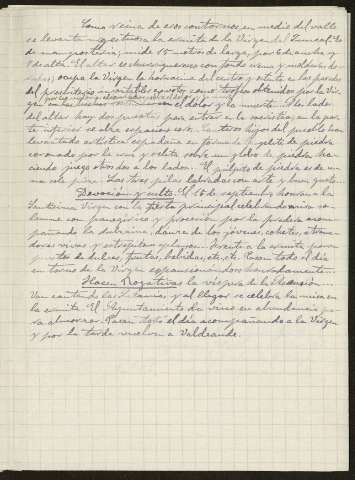 Como reina de esos contornos, en medio del valle
se levanta majestuosa la ermita de la Virgen del
de mampostería; mide 15 metros de larga, por 6 de ancha y
8 de alta. El altar es churrigueresco con fondo
ocupa la Virgen la hornacina del centro y
del presbiterio
con el dolor y la muerte. A los lados
del altar hay dos puertas para entrar en la sacristía, en la par-
te inferior se abre espacioso coro. Los hijos del pueblo han
levantado artística espadaña en forma de de piedra
coronado por la cruz y veleta sobre un globo de piedra, ha-
ciendo juego otros dos a los lados. El púlpito de piedra es de u-
na sola pieza. Las tres pilas labradas con arte y buen gusto.
Devoción y culto. El 15 de septiembre honran a la
Santísima Virgen con la fiesta principal celebrando misa so-
lemne con panegírico y procesión por la pradera acom-
pañando la dulzaina, danza de los jóvenes, cohetes, atrona-
dores vivas y Frente a la ermita ponen
puestos de dulces, frutas, bebidas, etc, etc. Pasan todo el día
en torno de la Virgen expansionándose honradamente.
Hacen Rogativas la víspera de la Ascensión...
Van cantando las Letanías, y al llegar se celebra la misa en
la ermita. El Ayuntamiento da vino en abundancia pa-
ra almorzar. Pasan todo el día acompañando a la Virgen
y por la tarde vuelven a Valdeande.